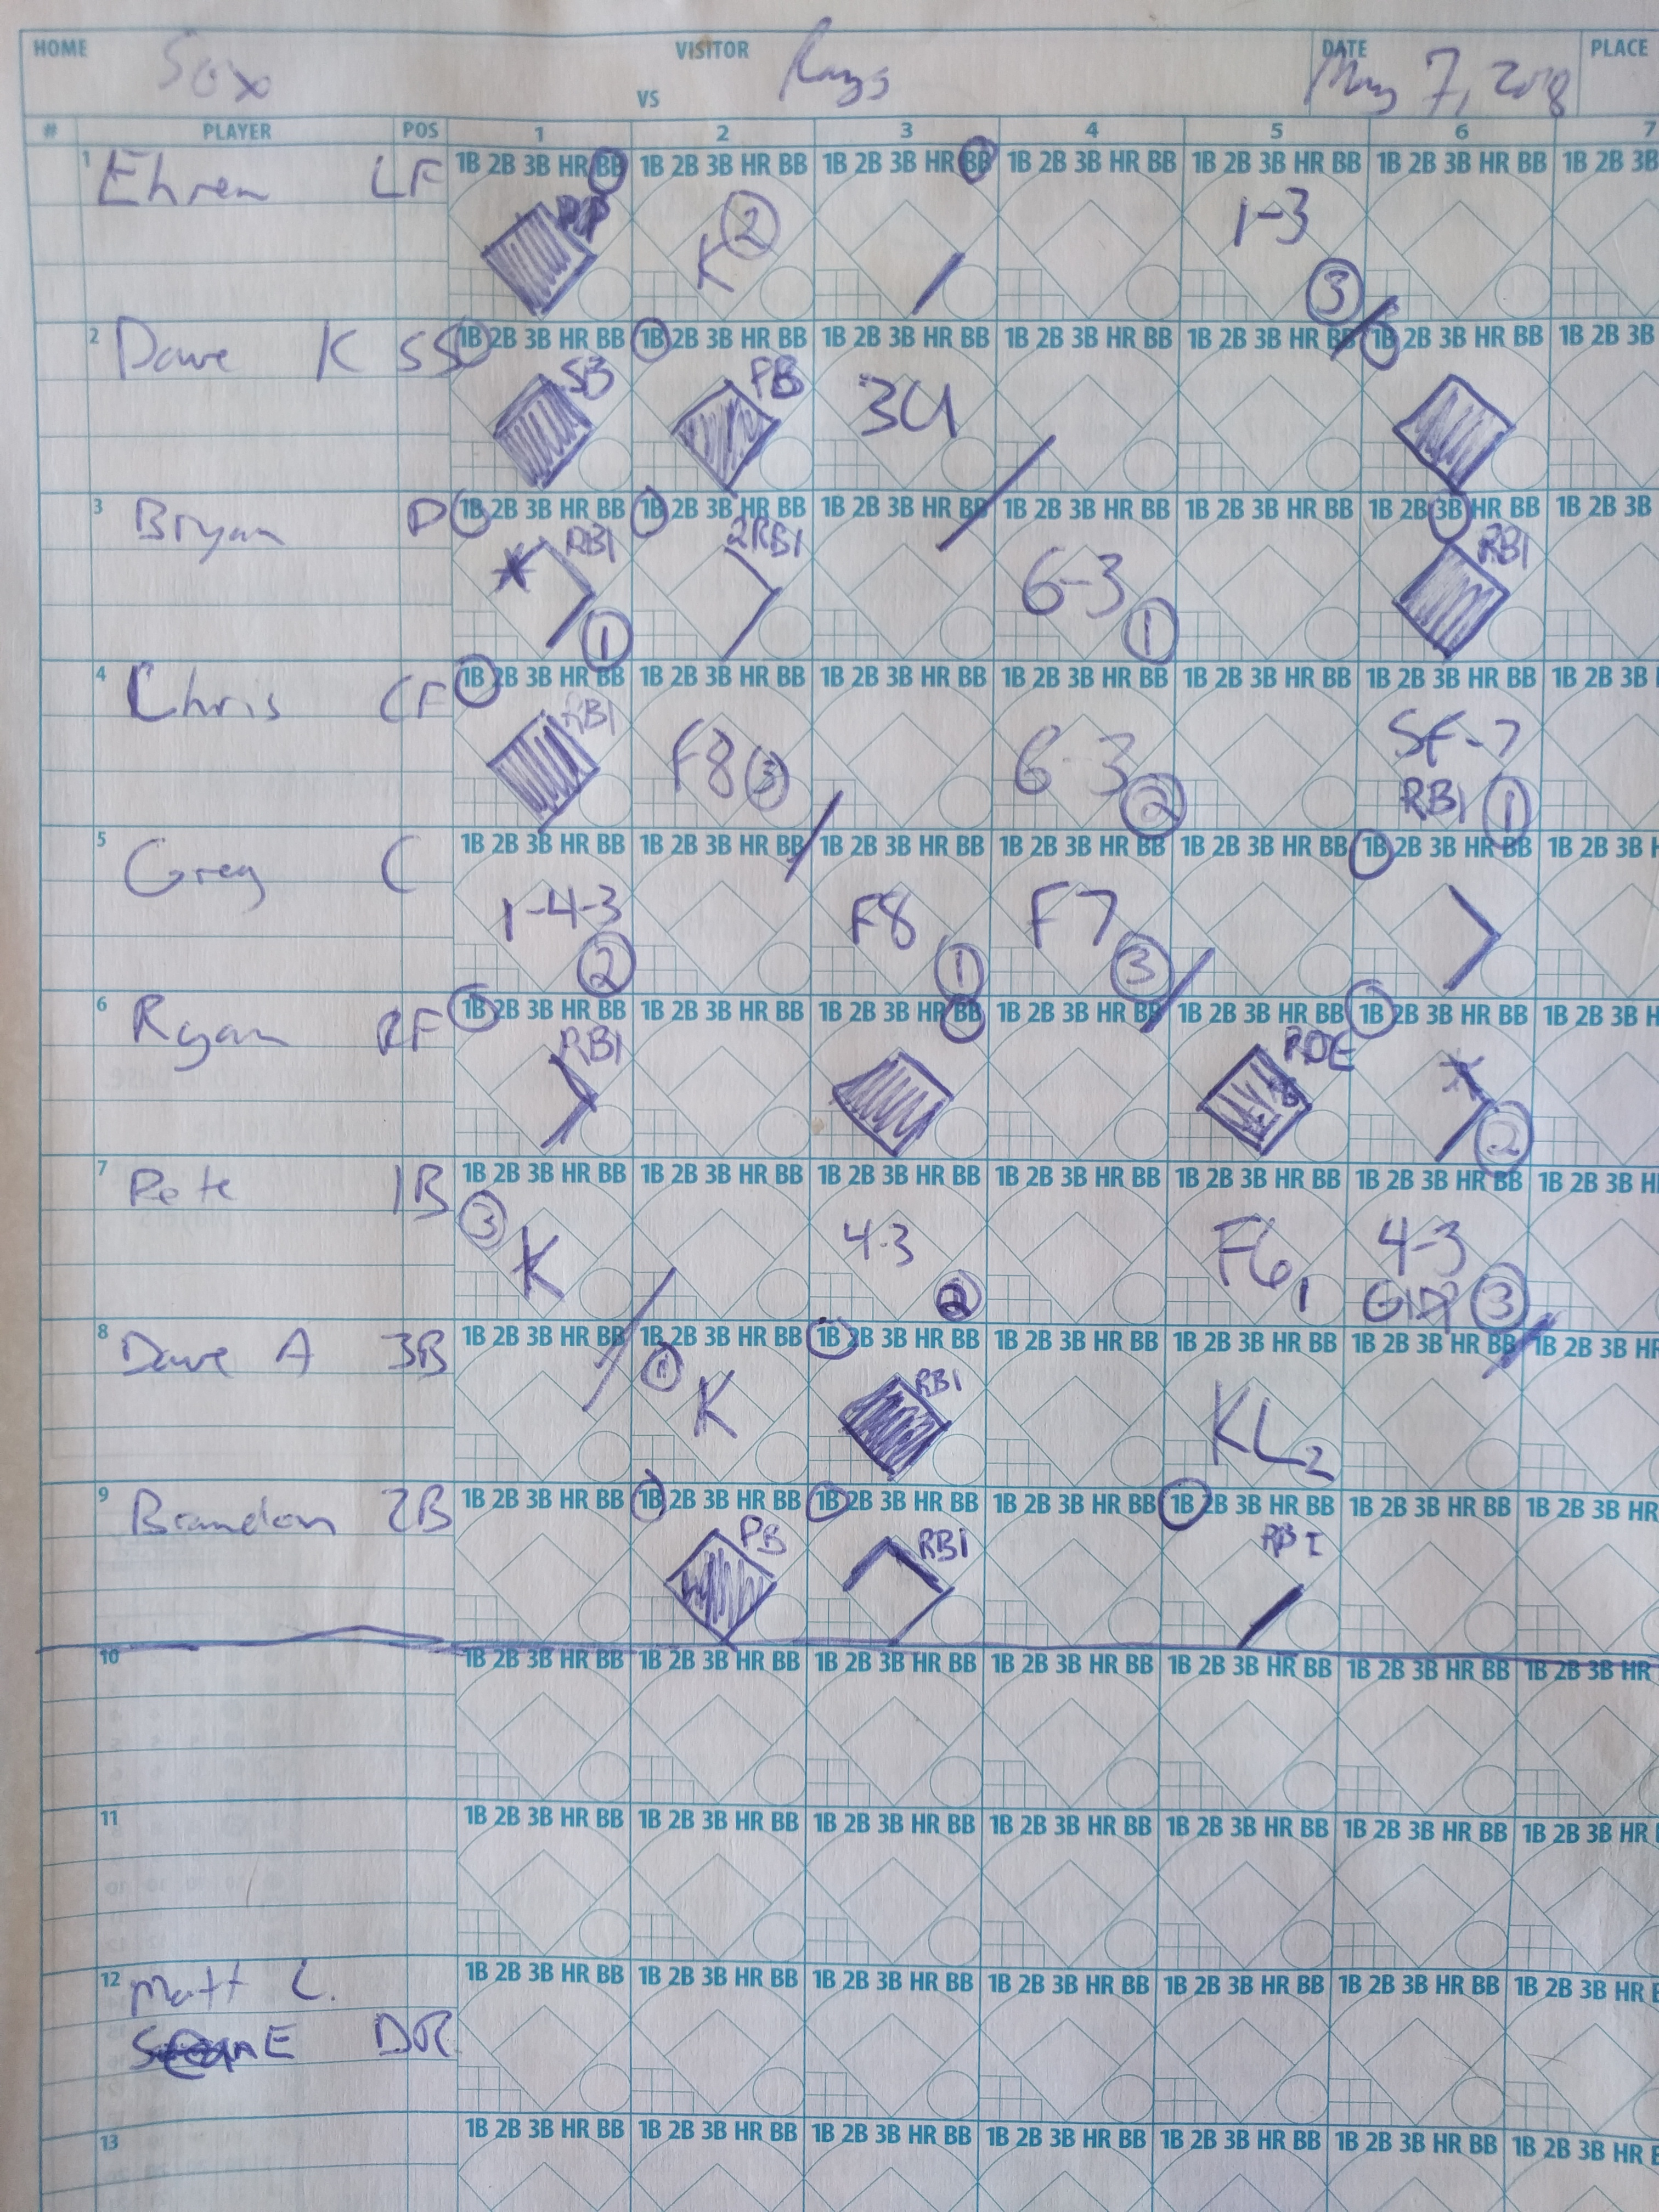 HOME Sox VS VISITOR Rays DATE May 7, 2018 PLACE
# PLAYER POS 1 2 3 4 5 6 7
1 Ehren LF 1B 2B 3B HR BB 1B 2B 3B HR BB 1B 2B 3B HR BB 1B 2B 3B HR BB 1B 2B 3B HR BB 1B 2B 3B HR BB 1B 2B 3B
K 2 1-3 3
2 Dave K SS 1B 2B 3B HR BB 1B 2B 3B HR BB 1B 2B 3B HR BB 1B 2B 3B HR BB 1B 2B 3B HR BB 1B 2B 3B HR BB 1B 2B 3B
SB PB 3U
3 Bryan P 1B 2B 3B HR BB 1B 2B 3B HR BB 1B 2B 3B HR BB 1B 2B 3B HR BB 1B 2B 3B HR BB 1B 2B 3B HR BB 1B 2B 3B
* RBI 1 2RBI 6-3 1 RBI
4 Chris CF 1B 2B 3B HR BB 1B 2B 3B HR BB 1B 2B 3B HR BB 1B 2B 3B HR BB 1B 2B 3B HR BB 1B 2B 3B HR BB 1B 2B 3B
RBI F8 3 6-3 2 SF-7 RBI 1
5 Greg C 1B 2B 3B HR BB 1B 2B 3B HR BB 1B 2B 3B HR BB 1B 2B 3B HR BB 1B 2B 3B HR BB 1B 2B 3B HR BB 1B 2B 3B
1-4-3 2 F8 1 F7 3
6 Ryan RF 1B 2B 3B HR BB 1B 2B 3B HR BB 1B 2B 3B HR BB 1B 2B 3B HR BB 1B 2B 3B HR BB 1B 2B 3B HR BB 1B 2B 3B
RBI ROE * 2
7 Pete 1B 1B 2B 3B HR BB 1B 2B 3B HR BB 1B 2B 3B HR BB 1B 2B 3B HR BB 1B 2B 3B HR BB 1B 2B 3B HR BB 1B 2B 3B
3 K 4-3 2 F6 1 4-3 GIDP 3
8 Dave A 3B 1B 2B 3B HR BB 1B 2B 3B HR BB 1B 2B 3B HR BB 1B 2B 3B HR BB 1B 2B 3B HR BB 1B 2B 3B HR BB 1B 2B 3B HR
1 K RBI KL 2
9 Brandon 2B 1B 2B 3B HR BB 1B 2B 3B HR BB 1B 2B 3B HR BB 1B 2B 3B HR BB 1B 2B 3B HR BB 1B 2B 3B HR BB 1B 2B 3B HR
PB RBI RBI
10 1B 2B 3B HR BB 1B 2B 3B HR BB 1B 2B 3B HR BB 1B 2B 3B HR BB 1B 2B 3B HR BB 1B 2B 3B HR BB 1B 2B 3B HR
11 1B 2B 3B HR BB 1B 2B 3B HR BB 1B 2B 3B HR BB 1B 2B 3B HR BB 1B 2B 3B HR BB 1B 2B 3B HR BB 1B 2B 3B HR
12 Matt L. 1B 2B 3B HR BB 1B 2B 3B HR BB 1B 2B 3B HR BB 1B 2B 3B HR BB 1B 2B 3B HR BB 1B 2B 3B HR BB 1B 2B 3B HR
Sean E
13 1B 2B 3B HR BB 1B 2B 3B HR BB 1B 2B 3B HR BB 1B 2B 3B HR BB 1B 2B 3B HR BB 1B 2B 3B HR BB 1B 2B 3B HR